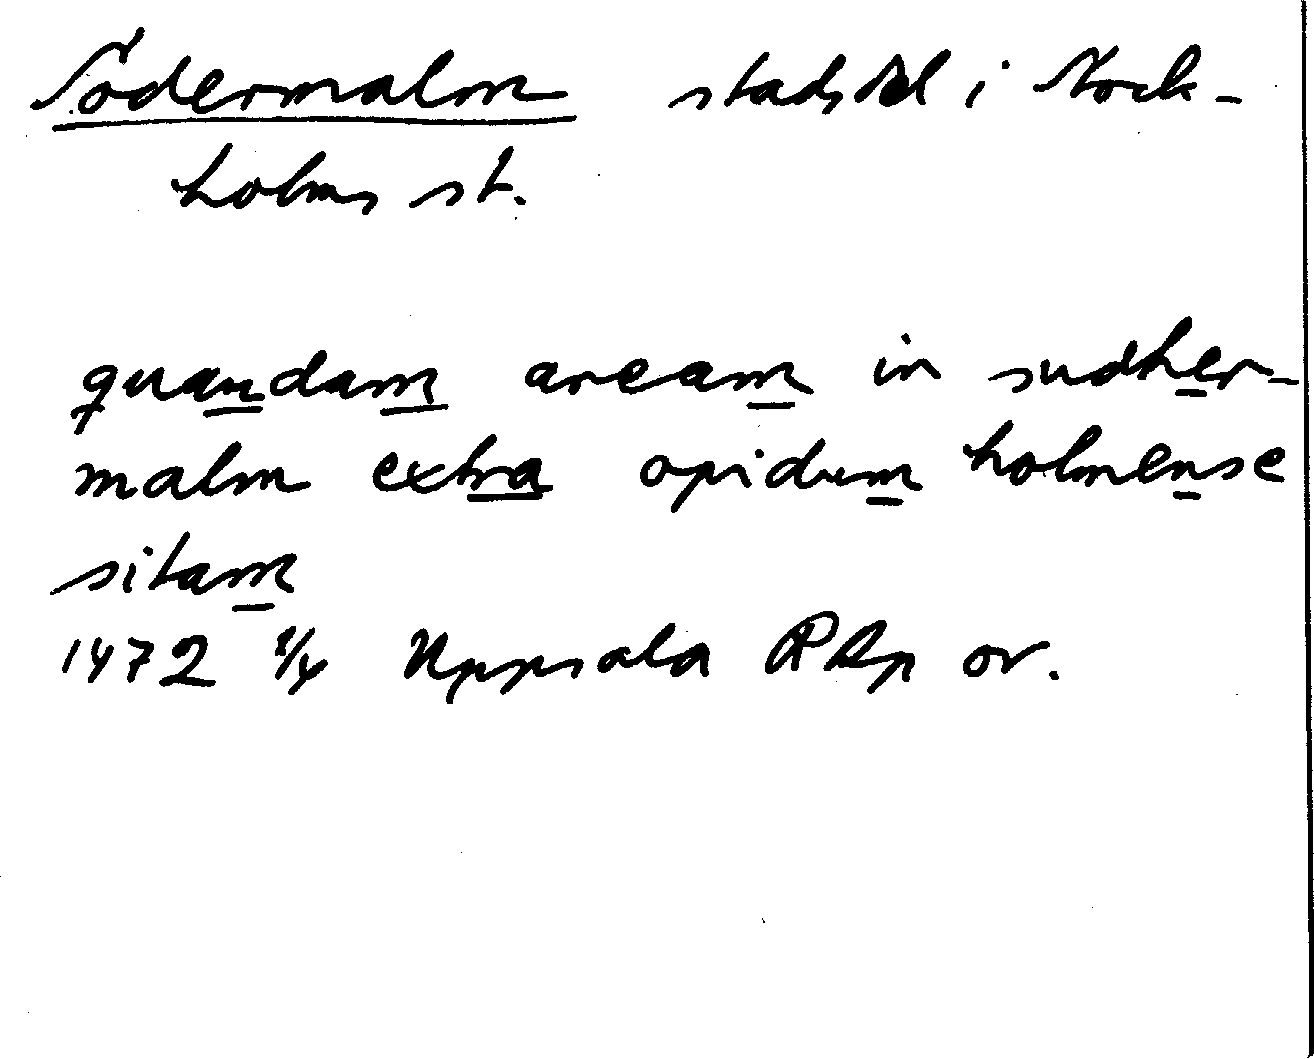 Södermalm stadsdel i Stock-
holms st.
quandam aream in sudher-
malm extra opidum holmense
sitam
1472 1/4 Uppsala RAp or.